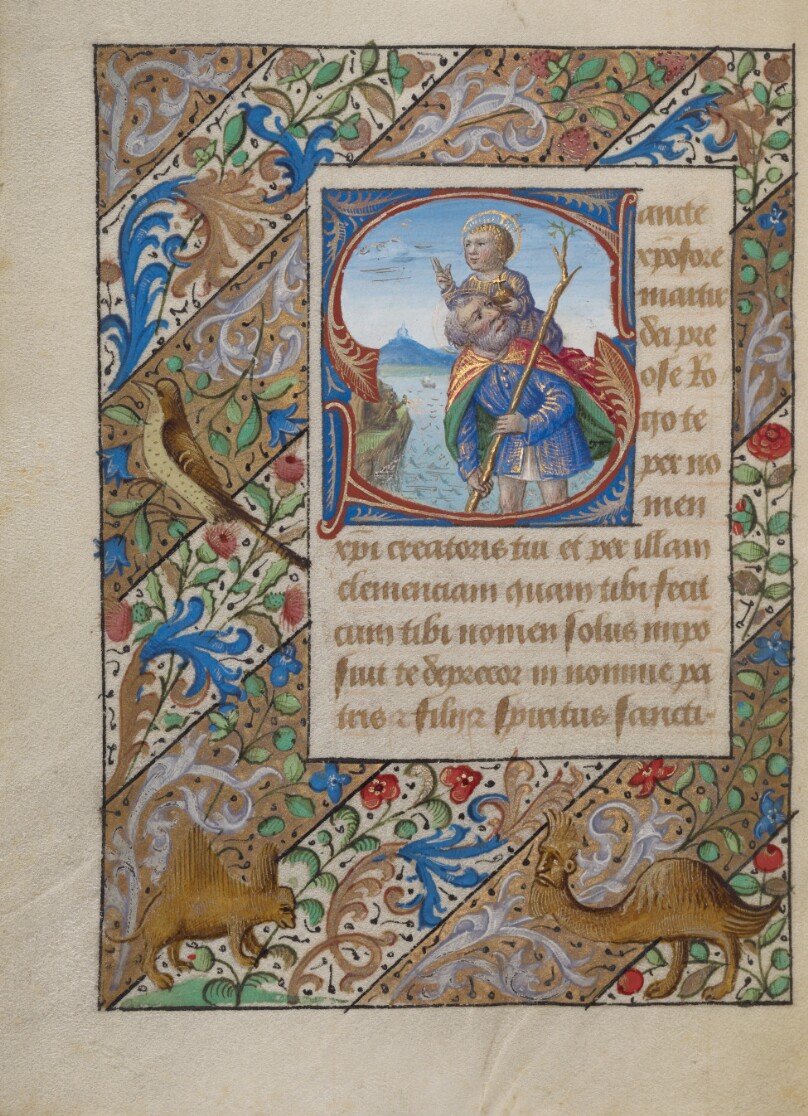 Sancte
xpofore
martir
dei pre
ciose Ro
go te
per no
men
xpi creatoris tui et per illam
clemenciam quam tibi fecit
cum tibi nomen solus impo
suit te deprecor in nomine pa
tris ⁊ filij ⁊ spiritus sancti·